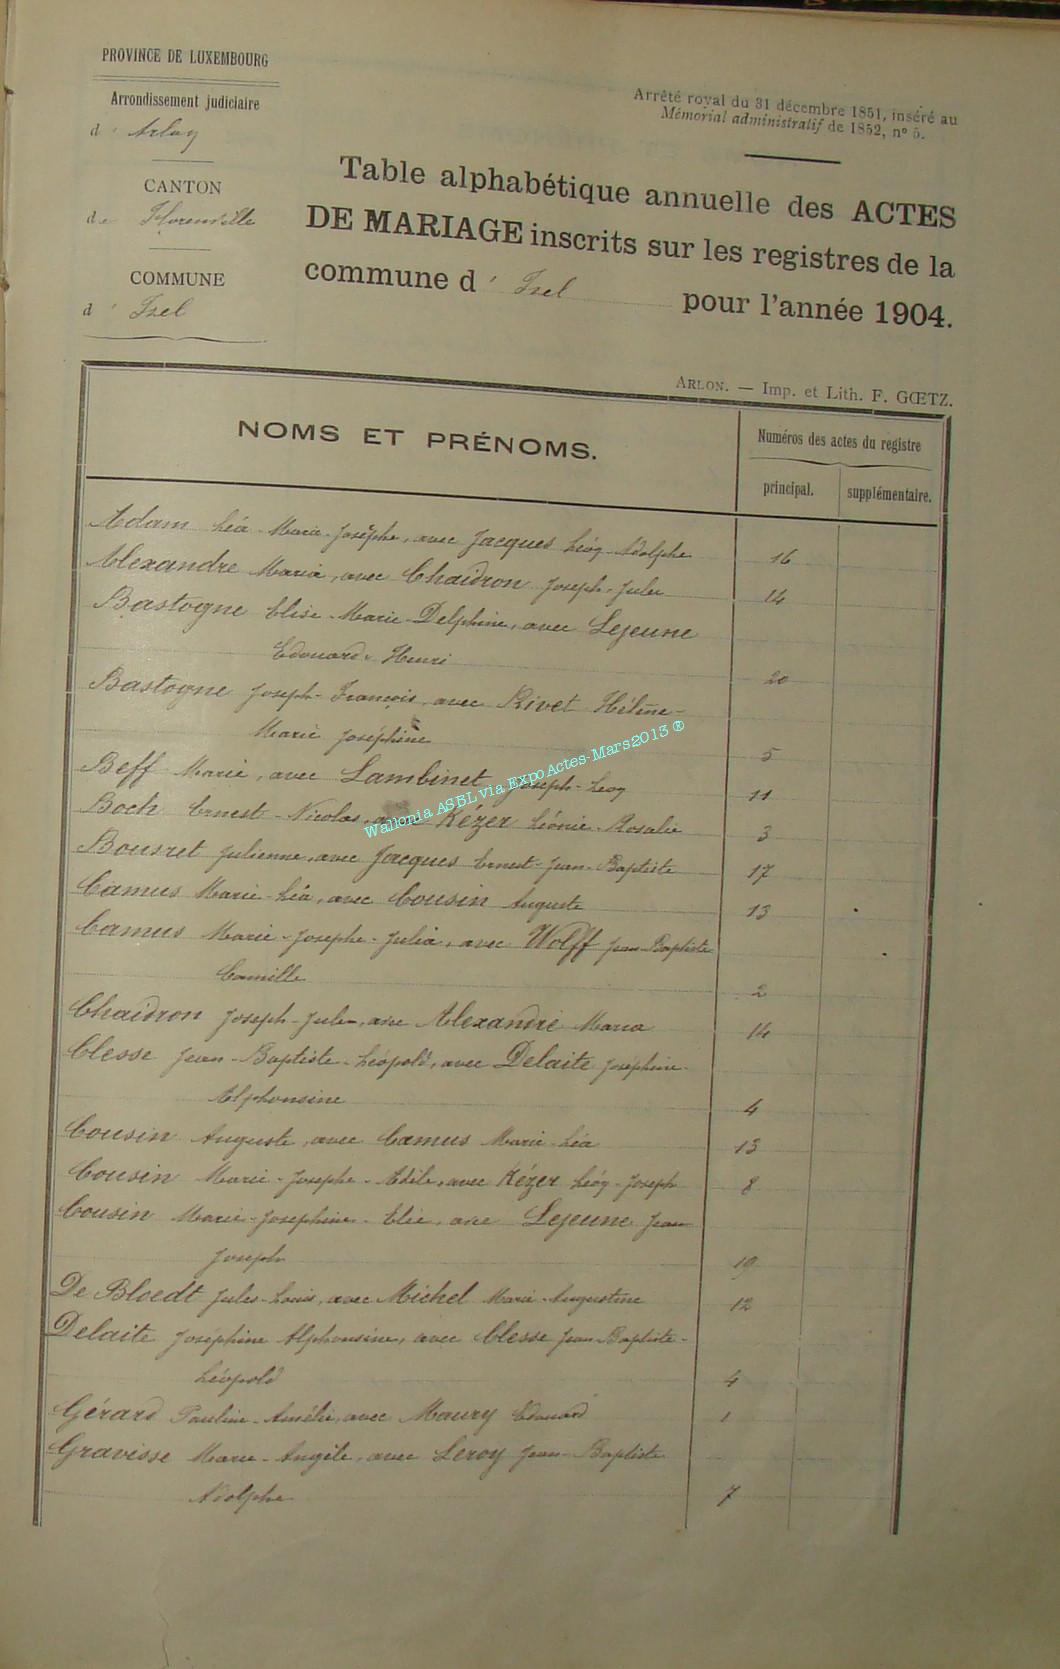 PROVINCE DE LUXEMBOURG
Arrondissement judiciaire
d' Arlon
CANTON
de Florenville
COMMUNE
d' Izel
Arrêté royal du 31 décembre 1851, inséré au
Mémorial administratif de 1852, n° 5.
Table alphabétique annuelle des ACTES
DE MARIAGE inscrits sur les registres de la
commune d' Izel pour l'année 1904.
ARLON. — Imp. et Lith. F. GŒTZ.
NOMS ET PRÉNOMS.
Numéros des actes du registre
principal.
supplémentaire.
Adam Léa-Marie-Josèphe, avec Jacques Léog-Adolphe 16
Alexandre Maria, avec Chaidron Joseph-Jules 14
Bastogne Elise-Marie-Delphine, avec Lejeune
Edouard-Henri 20
Bastogne Joseph-François, avec Rivet Hélène-
Marie Joséphine 5
Beff Marie, avec Lambinet Joseph-Léog 11
Boch Ernest-Nicolas, avec Kézer Léonie-Rosalie 3
Bousret Julienne, avec Jacques Ernest-Jean-Baptiste 17
Camus Marie-Léa, avec Cousin Auguste 13
Camus Marie-Josephe-Julia, avec Wolff Jean-Baptiste
Camille 2
Chaidron Joseph-Jules, avec Alexandre Maria 14
Clesse Jean-Baptiste-Léopold, avec Delaite Joséphine-
Alphonsine 4
Cousin Auguste, avec Camus Marie-Léa 13
Cousin Marie-Josephe-Adèle, avec Kézer Léog-Joseph 8
Cousin Marie-Josephine-Elie, avec Lejeune Jean
Joseph 19
De Bloedt Jules-Louis, avec Michel Marie-Augustine 12
Delaite Joséphine Alphonsine, avec Clesse Jean-Baptiste-
Léopold 4
Gérard Pauline-Amélie, avec Maury Edouard 1
Gravisse Marie-Angèle, avec Leroy Jean-Baptiste
Adolphe 7
Wallonia ASBL via ExpoActes-Mars2013 ®